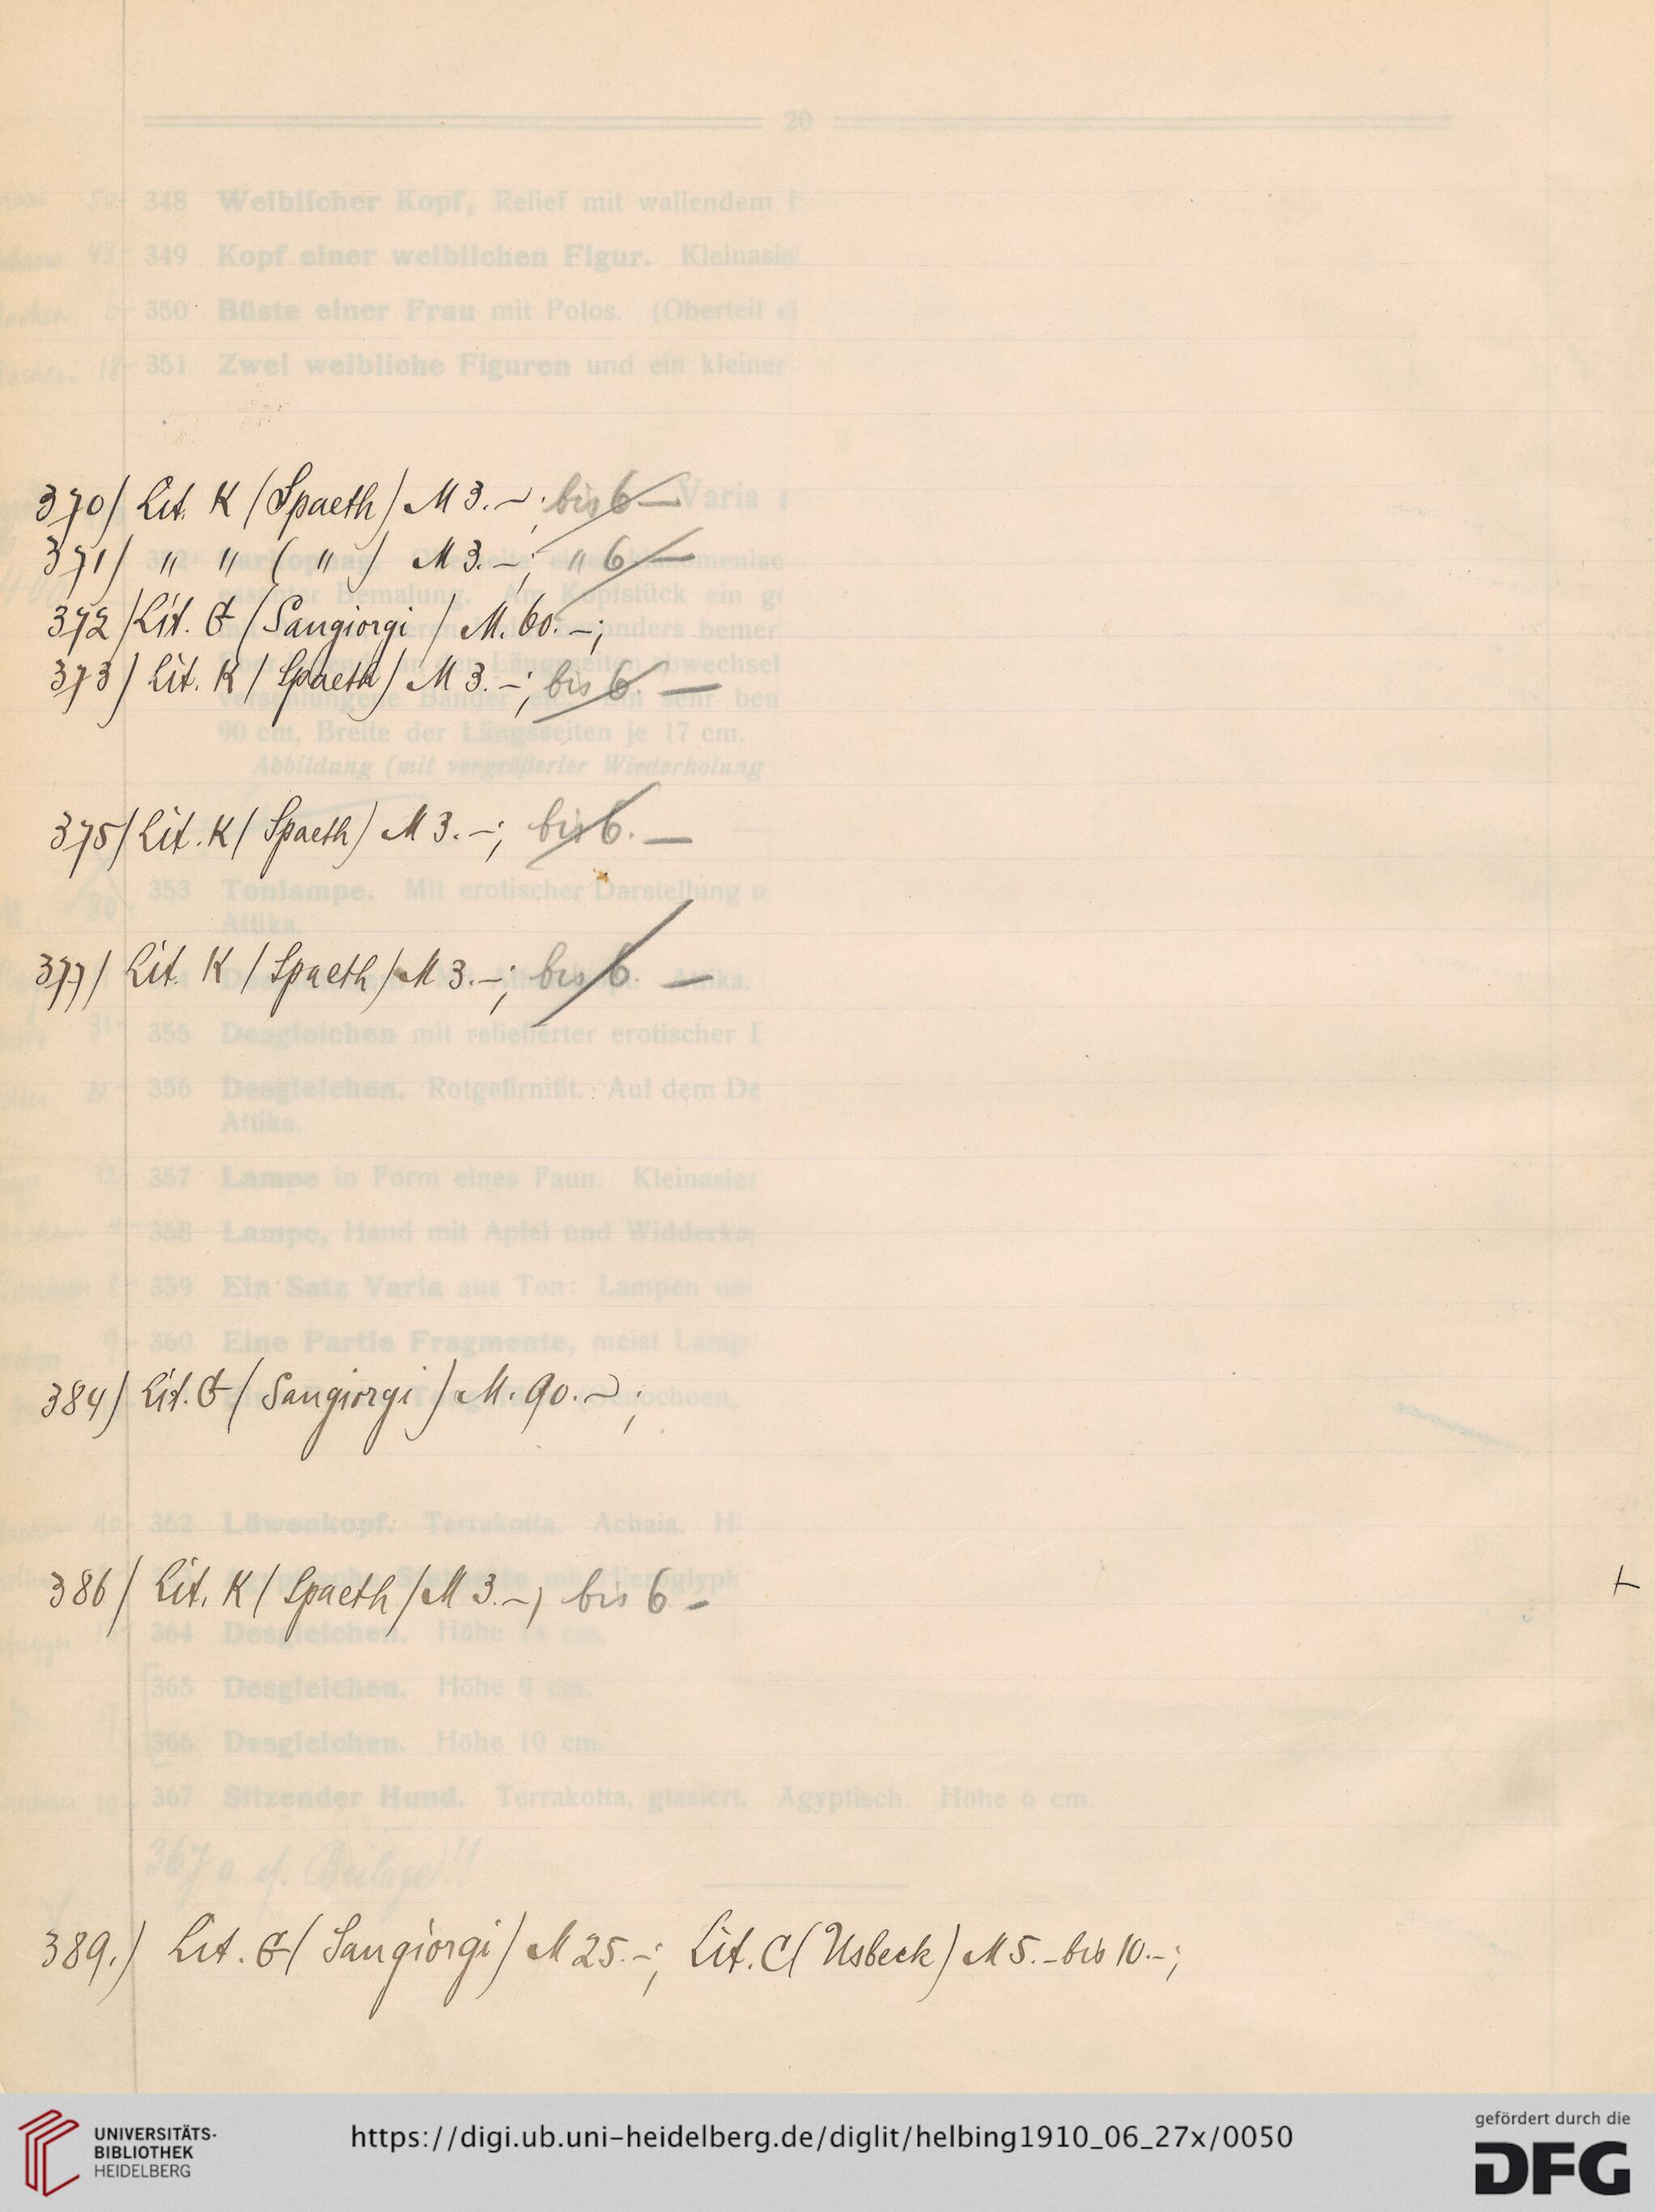 20
348 Weiblicher Kopf, Relief mit wallendem
349 Kopf einer weiblichen Figur. Kleinasie
350 Büste einer Frau mit Polos. (Oberteil
351 Zwei weibliche Figuren und ein kleiner
370/ Lit. K (Spaeth) M 3.–; bis 6 –
Varia
371/ " " ( " ) M 3.–; " 6 –
372/ Lit. G (Sangiorgi) M. 60.–;
373/ Lit. K (Spaeth) M 3.–; bis 6. –
90 cm, Breite der Längsseiten je 17 cm.
Abbildung (mit vergrößerter Wiederholung
375/ Lit. K (Spaeth) M 3.–; bis 6. –
353 Tonlampe. Mit erotischer Darstellung u
Attika.
377/ Lit. K (Spaeth) M 3.–; bis 6. –
355 Desgleichen mit reliefierter erotischer
356 Desgleichen. Rotgefirnißt. Auf dem De
Attika.
357 Lampe in Form eines Faun. Kleinasien
358 Lampe, Hand mit Apfel und Widderko
359 Ein Satz Varia aus Ton: Lampen
360 Eine Partie Fragmente, meist Lamp
384/ Lit. G (Sangiorgi) M. 90.–;
362 Löwenkopf. Terrakotta. Achaia. H
386/ Lit. K (Spaeth) M 3.–; bis 6 –
364 Desgleichen. Höhe 14 cm.
365 Desgleichen. Höhe 9 cm.
366 Desgleichen. Höhe 10 cm.
367 Sitzender Hund. Terrakotta, glasiert. Ägyptisch. Höhe 6 cm.
367 a cf. Beilage!!
389.) Lit. G (Sangiorgi) M 25.–; Lit. C (Usbeck) M 5.– bis 10.–;
UNIVERSITÄTS-
BIBLIOTHEK
HEIDELBERG
https://digi.ub.uni-heidelberg.de/diglit/helbing1910_06_27x/0050
gefördert durch die
DFG